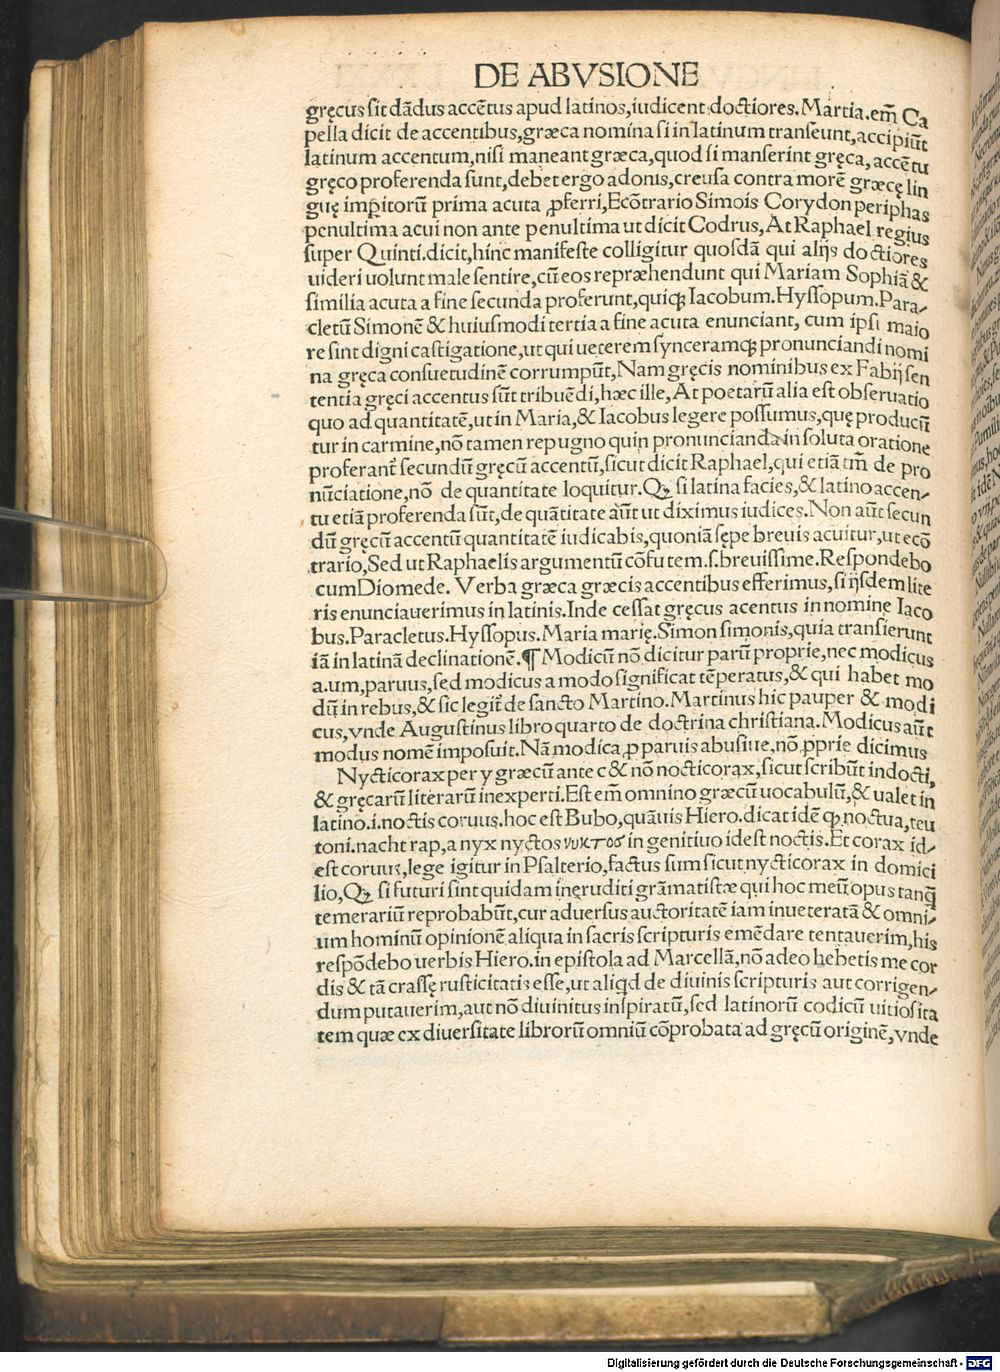 DE ABVSIONE
gręcus sit dādus accētus apud latinos,iudicent doctiores.Martia.em̄ Ca
pella dicit de accentibus,græca nomina si in latinum transeunt,accipiūt
latinum accentum,nisi maneant græca,quod si manserint gręca, accētu
gręco proferenda sunt,debet ergo adonis,creusa contra morē græcę lin
guę imꝑitorū prima acuta ꝓferri,Ecōtrario Simois Corydon periphas
penultima acui non ante penultima ut dicit Codrus,At Raphael regius
super Quinti.dicit,hinc manifeste colligitur quosdā qui alijs doctiores
uideri uolunt male sentire,cū eos repræhendunt qui Mariam Sophiā &
similia acuta a fine secunda proferunt,quiqꝫ Iacobum.Hyssopum.Para⸗
cletū Simonē & huiusmodi tertia a fine acuta enunciant, cum ipsi maio
re sint digni castigatione,ut qui ueterem synceramqꝫ pronunciandi nomi
na gręca consuetudinē corrumpūt,Nam gręcis nominibus ex Fabij sen
tentia gręci accentus sūt tribuēdi,hæc ille,At poetarū alia est obseruatio
quo ad quantitatē,ut in Maria,& Iacobus legere possumus,quę producū
tur in carmine,nō tamen repugno quin pronuncianda in soluta oratione
proferant᷑ secundū gręcū accentū,sicut dicit Raphael,qui etiā tm̄ de pro
nūciatione,nō de quantitate loquitur.Qꝫ si latina facies,& latino accen⸗
tu etiā proferenda sūt,de quātitate aūt ut diximus iudices.Non aūt secun
dū gręcū accentū quantitatē iudicabis,quoniā sępe breuis acuitur,ut ecō
trario,Sed ut Raphaelis argumentū cōfutem.s.breuissime.Respondebo
cum Diomede. Verba græca græcis accentibus efferimus,si ijsdem lite
ris enunciauerimus in latinis.Inde cessat gręcus acentus in nomine Iaco
bus.Paracletus.Hyssopus.Maria marię.Simon simonis,quia transierunt
iā in latinā declinationē.¶ Modicū nō dicitur parū proprie,nec modicus
a.um,paruus,sed modicus a modo significat tēperatus,& qui habet mo
dū in rebus,& sic legit᷑ de sancto Martino.Martinus hic pauper & modi
cus,vnde Augustinus libro quarto de doctrina christiana.Modicus aūt
modus nomē imposuit.Nā modica,ꝓ paruis abusiue,nō ꝓprie dicimus
Nycticorax per y græcū ante c & nō nocticorax,sicut scribūt indocti,
& gręcarū literarū inexperti.Est em̄ omnino græcū uocabulū,& ualet in
latino.i.noctis coruus.hoc est Bubo,quāuis Hiero.dicat idē qꝫ noctua,teu
toni.nacht rap,a nyx nyctos νυκτος in genitiuo idest noctis.Et corax id⸗
est coruus,lege igitur in Psalterio,factus sum sicut nycticorax in domici
lio,Qꝫ si futuri sint quidam ineruditi grāmatistæ qui hoc meū opus tanq̄
temerariū reprobabūt,cur aduersus auctoritatē iam inueteratā & omni⸗
um hominū opinionē aliqua in sacris scripturis emēdare tentauerim,his
respōdebo uerbis Hiero.in epistola ad Marcellā,nō adeo hebetis me cor
dis & tā crassę rusticitatis esse,ut aliqd de diuinis scripturis aut corrigen⸗
dum putauerim,aut nō diuinitus inspiratū,sed latinorū codicū uitiosita
tem quæ ex diuersitate librorū omniū cōprobata ad gręcū originē,vnde
Digitalisierung gefördert durch die Deutsche Forschungsgemeinschaft - DFG